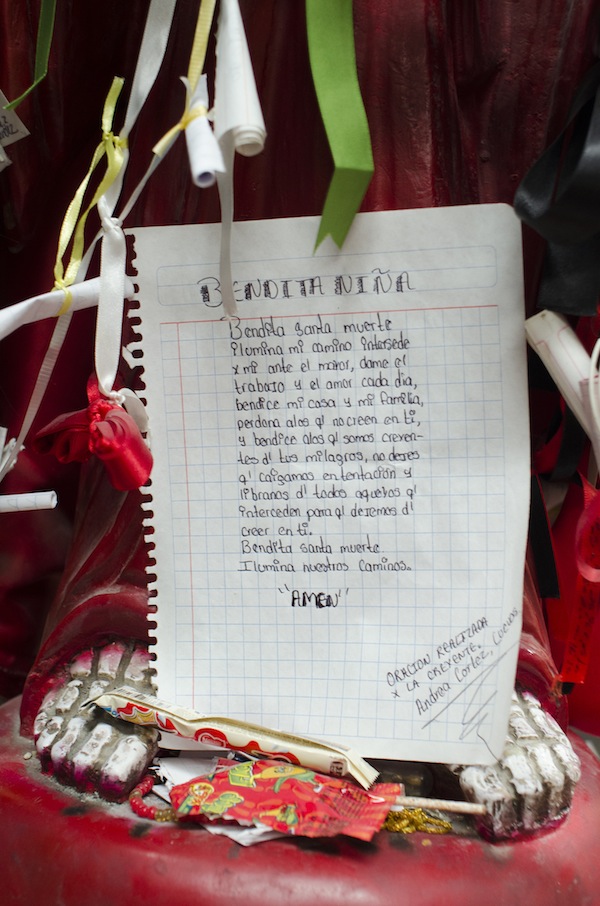 BENDITA NIÑA
Bendita santa muerte
ilumina mi camino intersede
x mi ante el mator, dame el
trabajo y el amor cada dia,
bendice mi casa y mi familia,
perdona alos q' no creen en ti,
y bendice alos q' somos creyen-
tes d' tus milagros, no dejes
q' caigamos en tentación y
libranos d' todos aquellos q'
interceden para q' dejemos d'
creer en ti.
Bendita santa muerte
Ilumina nuestros caminos.
"AMEN"
ORACION REALIZADA
X LA CREYENTE.
Andrea Cortez,